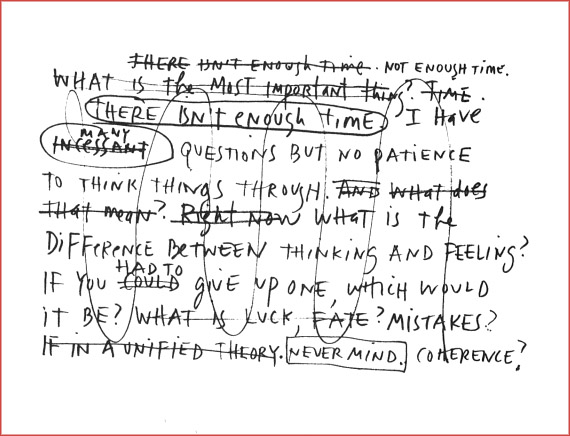 THERE ISN'T ENOUGH TIME. NOT ENOUGH TIME.
WHAT IS THE MOST IMPORTANT THING? TIME.
THERE ISN'T ENOUGH TIME, I HAVE
MANY
INCESSANT QUESTIONS BUT NO PATIENCE
TO THINK THINGS THROUGH. AND WHAT DOES
THAT MEAN? RIGHT NOW WHAT IS THE
DIFFERENCE BETWEEN THINKING AND FEELING?
HAD TO
IF YOU COULD GIVE UP ONE, WHICH WOULD
IT BE? WHAT IS LUCK, FATE? MISTAKES?
IF IN A UNIFIED THEORY. NEVER MIND. COHERENCE?